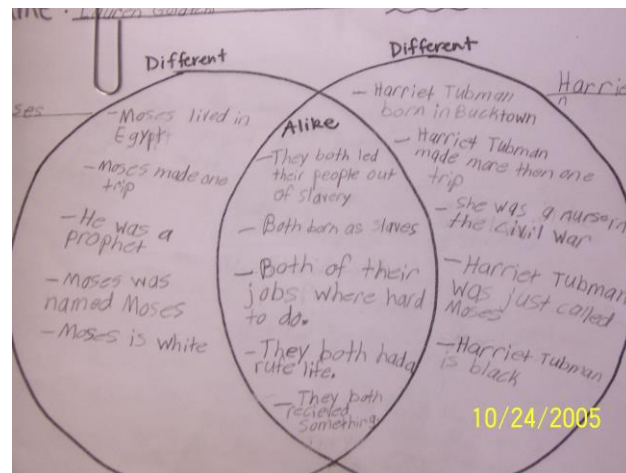 Different
Different
Harrie
ses
- Moses lived in
Egypt
- Moses made one
trip
- He was a
prophet
- Moses was
named Moses
- Moses is white
Alike
- They both led
their people out
of slavery
- Both born as slaves
- Both of their
jobs where hard
to do.
- They both had a
rute life.
- They both
recieved
something
- Harriet Tubman
born in Bucktown
- Harriet Tubman
made more then one
trip
- She was a nurse in
the civil war
- Harriet Tubman
was just called
Moses
- Harriet Tubman
is black
10/24/2005